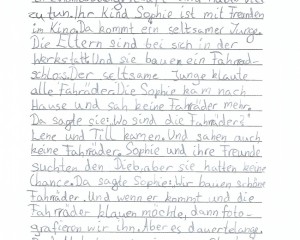 zu tun. Ihr Kind Sophie ist mit Freunden
im Kino. Da kommt ein seltsamer Junge.
Die Eltern sind bei sich in der
Werkstatt. Und sie bauen ein Fahrrad-
schlos. Der seltsame Junge klaute
alle Fahräder. Die Sophie kam nach
Hause und sah keine Fahräder mehr.
Da sagte sie: Wo sind die Fahräder?"
Lene und Till kamen. Und sahen auch
keine Fahräder. Sophie und ihre Freunde
suchten den Dieb, aber sie hatten keine
Chance. Da sagte Sophie: Wir bauen schöne
Fahräder. Und wenn er kommt und die
Fahrräder klauen möchte, dann foto-
grafieren wir ihn. Aber es dauerte lange.